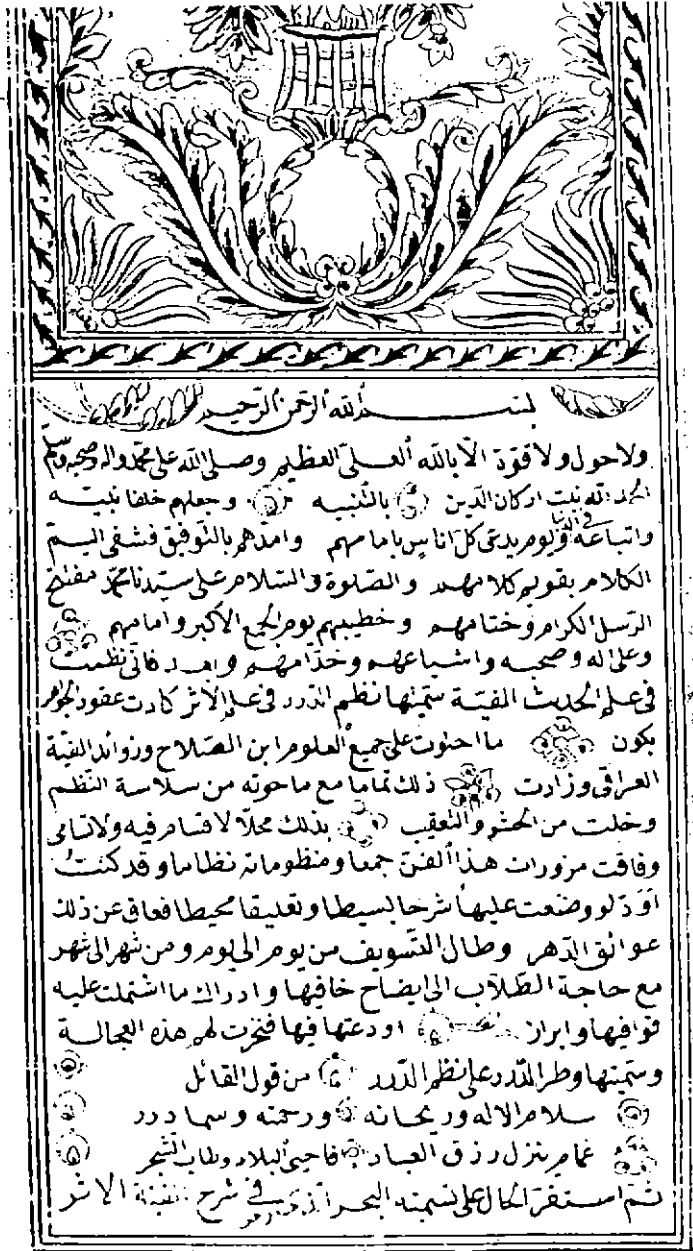 بسم الله الرحمن الرحيم
ولا حول ولا قوة الا بالله العلي العظيم وصلى الله على محمد واله وصحبه وسلم
الحمد لله اركان الدين بالتنبيه وجعلهم خلفا نبيه
واتباعه في الدنيا ويوم يدعى كل اناس بامامهم وامدهم بالتوفيق فشفى اليم
الكلام بقويم كلامهم والصلوة والسلام على سيدنا محمد مفتتح
الرسل الكرام وختامهم وخطيبهم يوم الجمع الأكبر وامامهم
وعلى اله وصحبه واشياعهم وخدامهم فانى نظمت
فى علم الحديث الفية سميتها نظم الدرر فى علم الاثر كادت عقود الجواهر
بكون ما احتوت على جميع العلوم ابن الصلاح وزوائد الفية
العراقى وزادت ذلك تماما مع ما حوته من سلاسة النظم
وخلت من الحشو والتعقيب بذلك محلا فيه
وفاقت هذا الفن جمعا ومنظوماته نظاما وقد كنت
اود لو وضعت عليها شرحا بسيطا وتعليقا محيطا فعاقى عن ذلك
عوائق الدهر وطال التسويف من يوم الى يوم ومن شهر الى شهر
مع حاجة الطلاب الى ايضاح خافيها وادراك ما اشتملت عليه
قوافيها وابراز اودعتها فيها فنجزت لهم هذه العجالة
وسميتها قطر الدرر على نظم الدرر من قول القائل
سلام الاله وريحانه ورحمته وسما درر
غمام ينزل رزق العباد فاحيى البلاد وطاب الشجر
ثم استقر الحال على تسميته البحر الذى فى شرح الفية الاثر